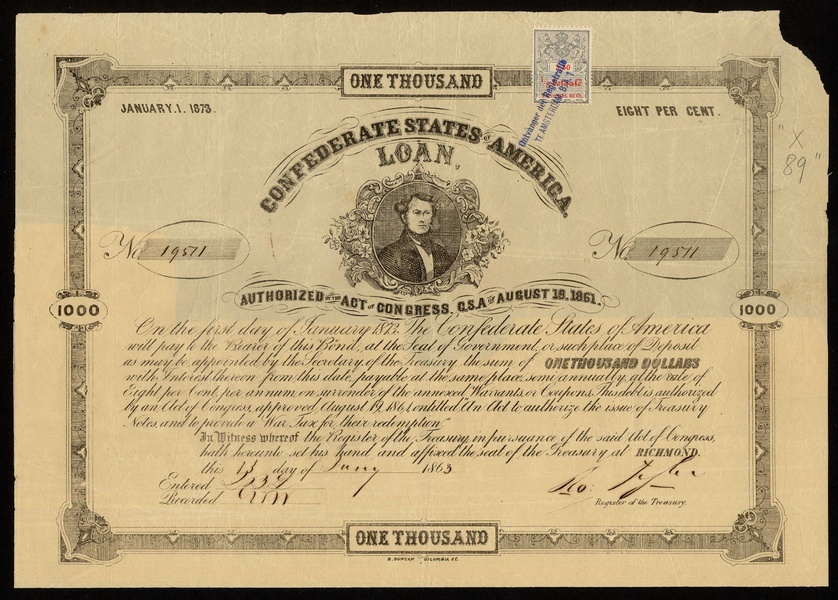 ONE THOUSAND
JANUARY. 1. 1873.
EIGHT PER CENT.
Ontvanger der Registratie
TE AMSTERDAM
CONFEDERATE STATES OF AMERICA.
LOAN,
"X
89"
No 19511
No. 19511
AUTHORIZED BY THE ACT OF CONGRESS, C.S.A OF AUGUST 19, 1861.
1000
1000
On the first day of January 1873. The Confederate States of America
will pay to the Bearer of this Bond, at the Seat of Government, or such place of Deposit
as may be appointed by the Secretary of the Treasury the sum of ONE THOUSAND DOLLARS
with Interest thereon from this date, payable at the same place, semi annually, at the rate of
Eight per Cent, per annum, on surrender of the annexed Warrants or Coupons. This debt is authorized
by an Act of Congress, approved August 19, 1861, entitled "An Act to authorize the issue of Treasury
Notes, and to provide a War Tax for their redemption"
In Witness whereof the Register of the Treasury, in pursuance of the said Act of Congress,
hath hereunto set his hand and affixed the seal of the Treasury, at RICHMOND.
this 13 day of Jany 1863
Entered
Recorded
Register of the Treasury.
ONE THOUSAND
B. DUNCAN COLUMBIA, S.C.